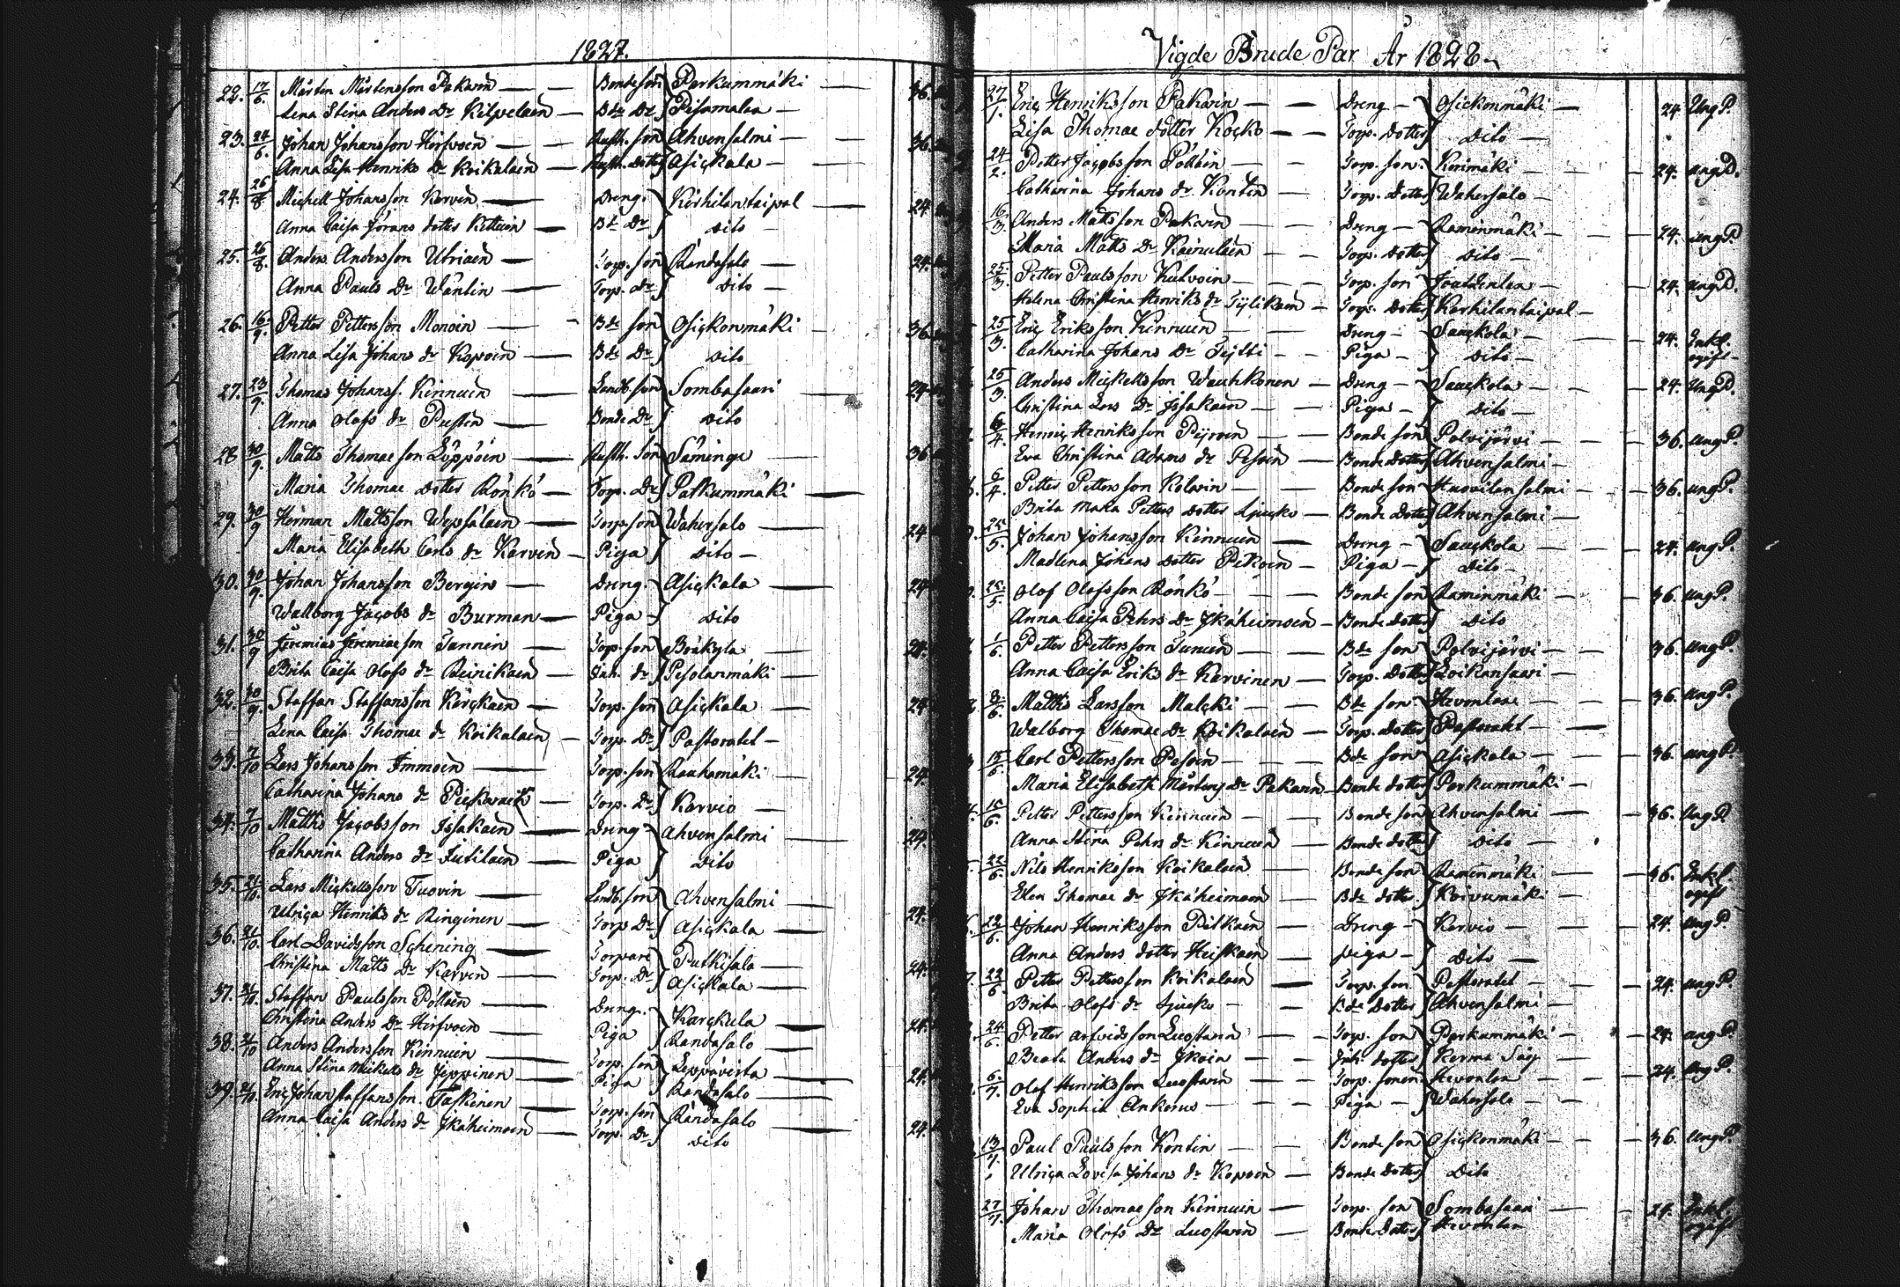 1827.
22. 17/6. Mårten Mårtensson Pakarin — Bondeson Perkummäki — 36.
Lena Stina Anders Dr Kilpelain — Bde Dr Pisamalax —
23. 24/6. Johan Johansson Hirfvoin — Rusth. son Ahvensalmi — 36.
Anna Lisa Henriks Dr Koikalain — Rusth. dotter Asickala —
24. 26/8 Michell Johansson Karvin — Dreng. Kerhilantaipal — 24.
Anna Caisa Jörans dotter — Bde Dr Dito —
25. 26/8. Anders Andersson Utriain — Torp. son Randasalo — 24.
Anna Pauls Dr Wäntin — Torp. Dr Dito —
26. 16/9. Petter Pettersson Monoin — Bde son Osickonmäki — 36.
Anna Lisa Johans dr Kopoin — Bde Dr Dito
27. 23/9. Thomas Johanss. Kinnuin Landb. son Sombasaari — 24.
Anna Olofs dr Pustin — Bonde Dr Dito
28. 30/9. Matts Thomae son Löppöin — Rusth. son Säminge — 36.
Maria Thomae dotter Rönkö — Torp. Dr Palkummäki —
29. 30/9 Herman Mattsson Wepsäläin — Torp son Wahersalo — 24.
Maria Elisabeth Carls dr Karvin — Piga Dito —
30. 30/9. Johan Johansson — Dreng. Asickala — 24.
Wallborg Jacobs dr Burman — Piga Dito
31. 30/9 Jeremias Jeremiae son Tannin — Torp. son — 24.
Brita Caisa Olofs dr Reinikain — dr Pesolanmäki —
32. 30/9. Staffan Staffansson — Torp. son Asickala — 24.
Lena Caisa Thomae dr Koikalain — Torp. Dr Pastoratet —
33. 7/10 Lars Johansson Immoin — Torp. son Rauhamäki — 24.
Catharina Johans dr — Torp. Dr Kervio —
34. 7/10 Matths Jacobsson Issakain — Dreng Ahvensalmi — 24.
Catharina Anders dr Jutilain — Piga Dito
35. 21/10. Lars Mickellsson Tuovin — Landb. son Ahvensalmi — 24.
Ulrica Henriks dr Ringinen — Torp Dr Asickala —
36. 21/10. Carl Davidsson Schening — Torpare Putkisalo — 24.
Christina Matts Dr Karvin — Torp. Dr Asickala —
37. 21/10. Staffan Paulsson Pöllöin — Dreng. Karckila — 24.
Christina Anders Dr Hirfvoin — Piga Randasalo —
38. 21/10 Anders Andersson Kinnuin — Torp. son Leppävirta — 24.
Anna Stina Mickels dr Jeppinen — Piga Randasalo —
39. 21/10. Eric Johan Staffansson Taskinen — Torp. son Randasalo — 24.
Anna Caisa Anders dr Ikäheimoin — Torp. Dr Dito
Vigde Brude Par År 1828.
27/1. Eric Henriksson Pakarin — Dreng — Osickonmäki — 24. Ung P.
Lisa Thomae dotter Kocko — Torp. dotter Dito —
24/2. Petter Jacobsson Pöllöin — Torp. son. Koimäki — 24. ung P.
Catharina Johans dr Kontin — Torp. dotter Wahersalo —
16/3 Anders Mattsson Pakarin — Dreng — Raminmäki — 24. ung P.
Maria Matts Dr Kainulain — Torp. dotter Dito —
25/3 Petter Paulsson Kulvoin — Torp. son — 24. ung P.
Helena Christina Henriks dr — Torp. dotter Kerhilantaipal —
25/3. Eric Eriksson Kinnuin — Dreng — Sauckola — 24. Enkl. ogift
Catharina Johans Dr — Piga — Dito —
25/3 Anders Mickellsson Wauhkonen — Dreng — Sauckola — 24. Ung P.
Christina Lars Dr Issakain — Piga — Dito —
6/4. Henric Henriksson — Bonde son Polvijärvi — 36. ung P.
Eva Christina Adams dr Pesoin — Bonde dotter Ahvensalmi —
6/4. Petter Pettersson — Bonde son Huovilansalmi — 36. ung P.
Brita Maria Petters dotter — Bonde dotter Ahvensalmi —
25/5. Johan Johansson Kinnuin — Dreng — Sauckola — 24. ung P.
Madlena Johans dotter Pikoin — Piga — Dito —
25/5. Olof Olofsson Rönkö — Bonde son Raminmäki — 36. ung P.
Anna Caisa Pehrs Dr Ikäheimoin — Bonde dotter Dito
1/6. Petter Pettersson — Bde son Polvijärvi — 36. ung P.
Anna Caisa Eriks dr Karvinen — Torp. dotter Loikansaari —
8/6. Matths Larsson Malcki — Bde son Hevonlax — 36. ung P.
Walborg Thomae Dr Koikalain — Torp. dotter Pastoratet —
15/6. Carl Pettersson Pesoin — Bde son Asickala — 36. ung P.
Maria Elisabeth Mårtens Dr Pakarin — Bonde dotter Perkummäki —
15/6. Petter Pettersson Kinnuin — Bonde son Ahvensalmi — 36. Ung P.
Anna Stina Pehrs dr Kinnuin — Bonde dotter Dito —
22/6. Nils Henriksson Koikalain — Bonde son Raminmäki — 36. Enkl. ogift
Elin Thomae dr Ikäheimoin — Bde dotter Koivumäki —
22/6. Johan Henriksson Pitkäin — Dreng — Kervio — 24. ung P.
Anna Anders dotter Heiskain — piga — Dito —
22/6. Petter Pettersson Koikalain — Torp. son Pastoratet — 24. ung P.
Brita Olofs dr — Bde dotter Ahvensalmi —
24/6. Petter Arfvidsson Luostarin — Torp. son Perkummäki — 24. ung P.
Beata Anders dr Ikoin — dotter Kerma Såg —
6/7. Olof Henriksson Luostarin — Torp. sonen Hevonlax — 24. ung P.
Eva Sophia Ankerus — Piga — Wahersalo —
13/7. Paul Pauls son Kontin — Bonde son Osickonmäki — 36. ung P.
Ulrica Lovisa Johans dr Kopoin — Bonde dotter Dito
27/7. Johan Thomae son Kinnuin — Torp. son Sombasaari — 24. Enkl. ogift
Maria Olofs Dr Luostarin — Bonde dotter Hevonlax